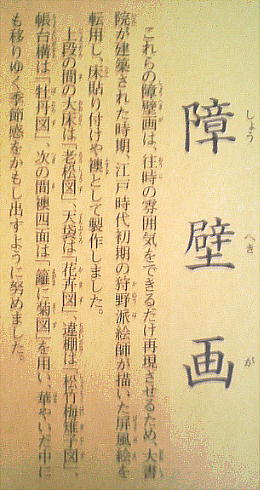 障壁画
しょう へき が
これらの障壁画は、往時の雰囲気をできるだけ再現させるため、大書
院が建築された時期、江戸時代初期の狩野派絵師が描いた屏風絵を
転用し、床貼り付けや襖として製作しました。
上段の間の大床は「老松図」、天袋は「花卉図」、違棚は「松竹梅雉子図」、
帳台構は「牡丹図」、次の間襖四面は「籬に菊図」を用い、華やいだ中に
も移りゆく季節感をかもし出すように努めました。